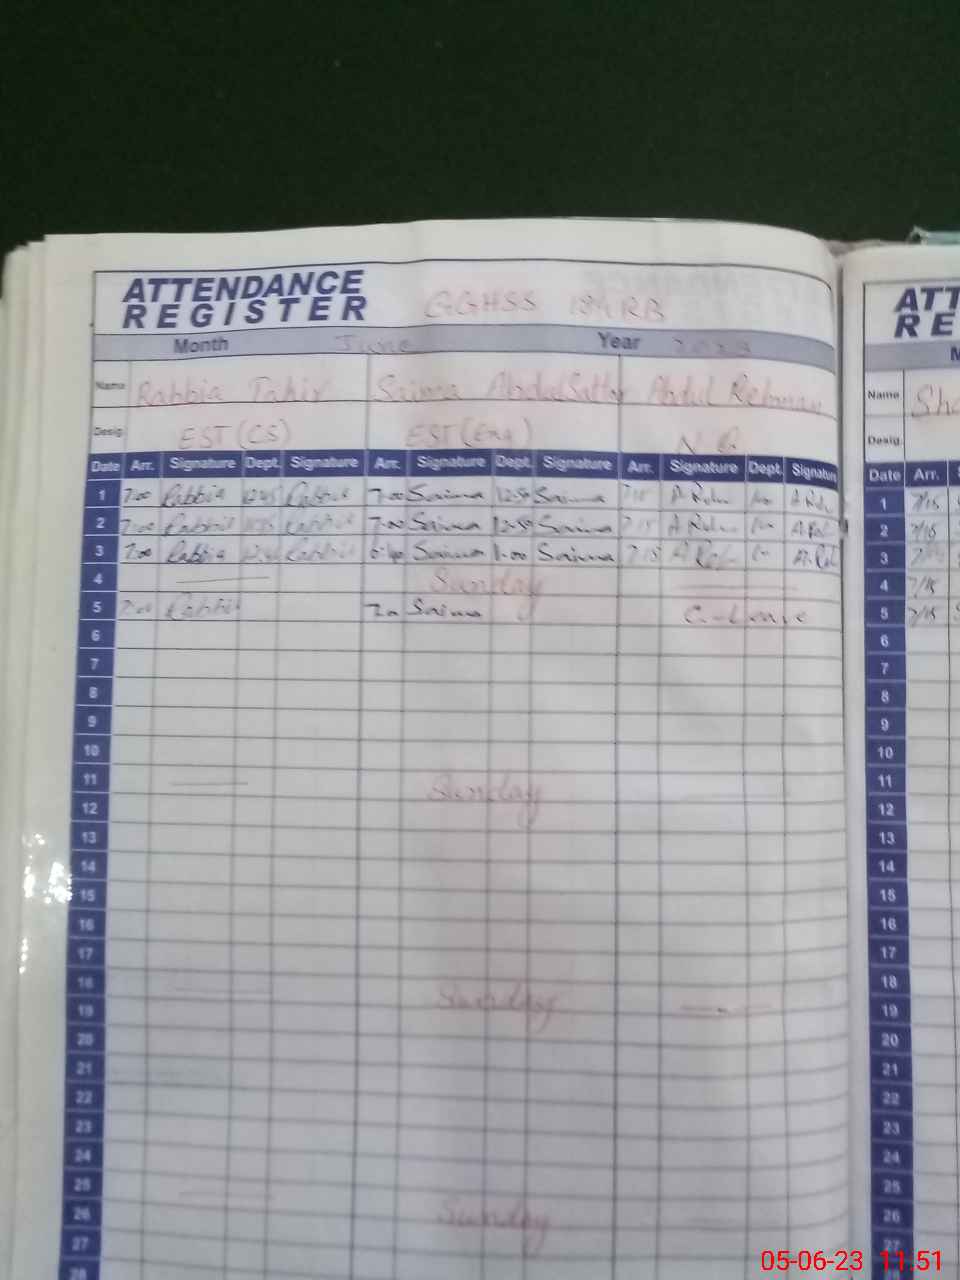 ATTENDANCE
REGISTER
GGHSS RB
Month June Year 2023
Name Rabbia Tahir Saima Abdul Sattar Abdul Rehman
Desig. EST (CS) EST (Eng)
Date Arr. Signature Dept. Signature Arr. Signature Dept. Signature Arr. Signature Dept. Signature
1 7:00 Rabbia 12:45 Rabbia 7-00 Saima 12-50 Saima 7:15
2 7:00 Rabbia Rabbia 7-00 Saima 12-50 Saima 7:15
3 7:00 Rabbia Rabbia 6-40 Saima 1-00 Saima 7:15
4 Sunday
5 7:00 Rabbia Saima C-Leave
6
7
8
9
10
11 Sunday
12
13
14
15
16
17
18 Sunday
19
20
21
22
23
24
25
26 Sunday
27
28
ATT
RE
M
Name Sha
Desig.
Date Arr.
1 7/15
2 7/15
3
4 7/15
5 7/15
6
7
8
9
10
11
12
13
14
15
16
17
18
19
20
21
22
23
24
25
26
27
05-06-23 11.51